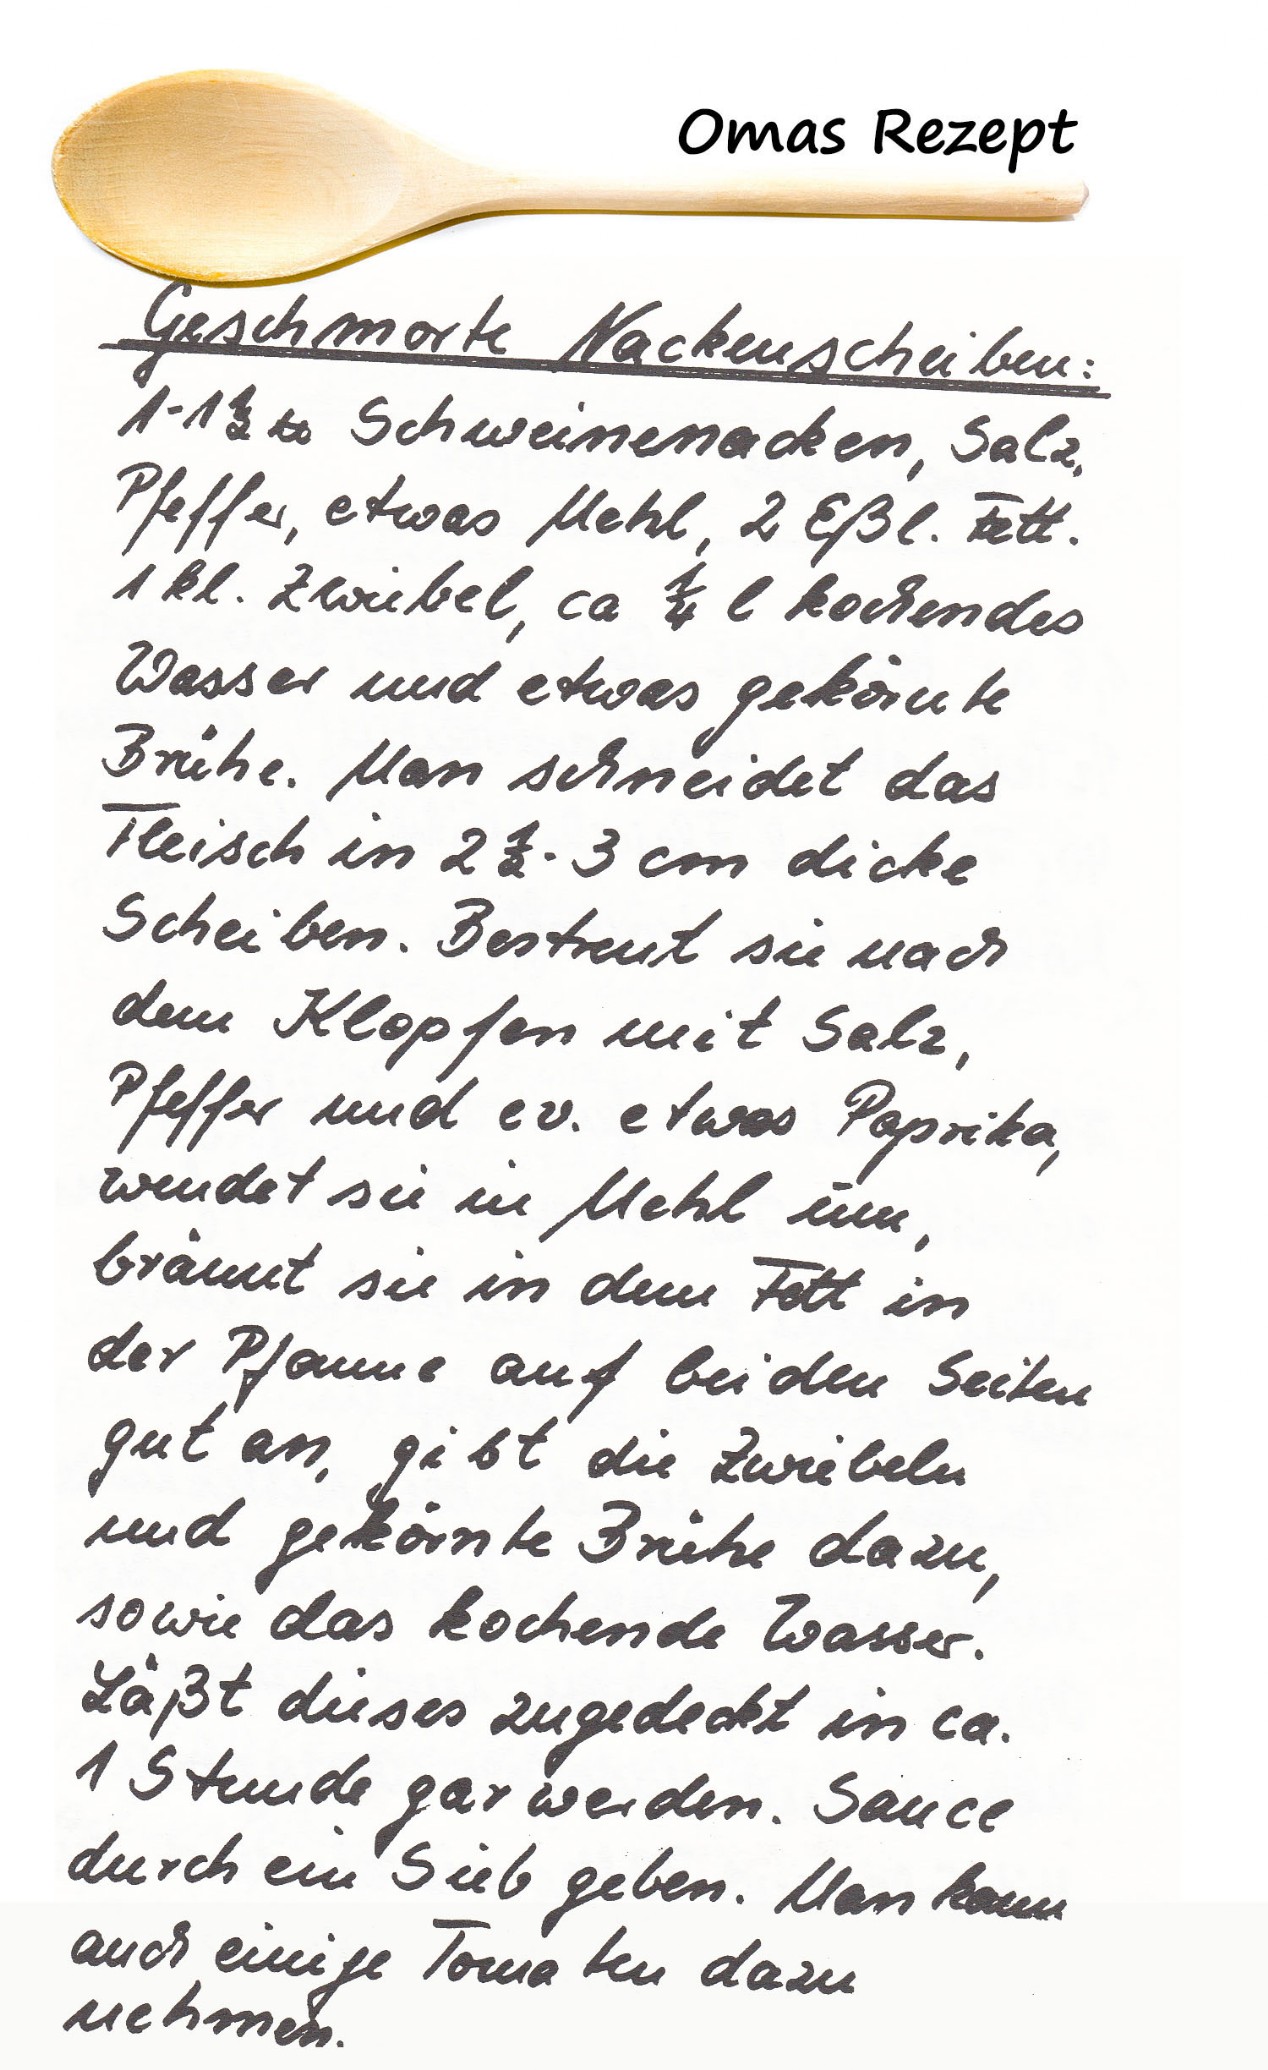 Omas Rezept
Geschmorte Nackenscheiben:
1-1½ Schweinenacken, Salz,
Pfeffer, etwas Mehl, 2 Eßl. Fett.
1 kl. Zwiebel, ca ¼ l kochendes
Wasser und etwas gekörnte
Brühe. Man schneidet das
Fleisch in 2½-3 cm dicke
Scheiben. Bestreut sie nach
dem Klopfen mit Salz,
Pfeffer und ev. etwas Paprika,
wendet sie in Mehl um,
bräunt sie in dem Fett in
der Pfanne auf beiden Seiten
gut an, gibt die Zwiebeln
und gekörnte Brühe dazu,
sowie das kochende Wasser.
Läßt dieses zugedeckt in ca.
1 Stunde gar werden. Sauce
durch ein Sieb geben. Man kann
auch einige Tomaten dazu
nehmen.